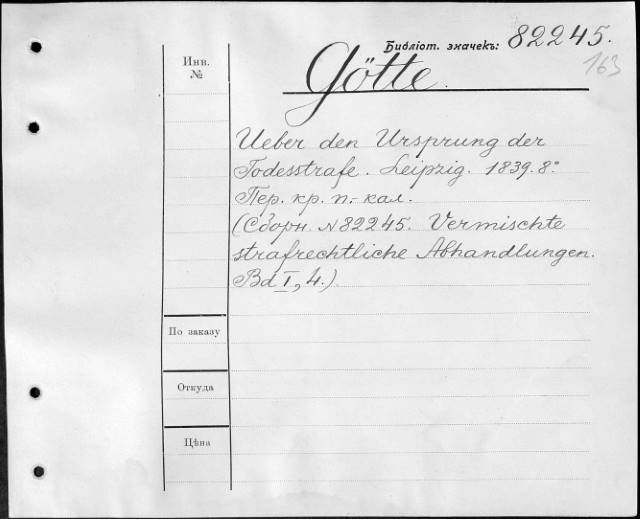 Библіот. значекъ: 82245.
163
Götte.
Инв.
№
Ueber den Ursprung der
Todesstrafe. Leipzig. 1839. 8º
Пер. кр. п.-кал.
(Сборн. №82245. Vermischte
strafrechtliche Abhandlungen.
Bd I, 4.)
По заказу
Откуда
Цѣна